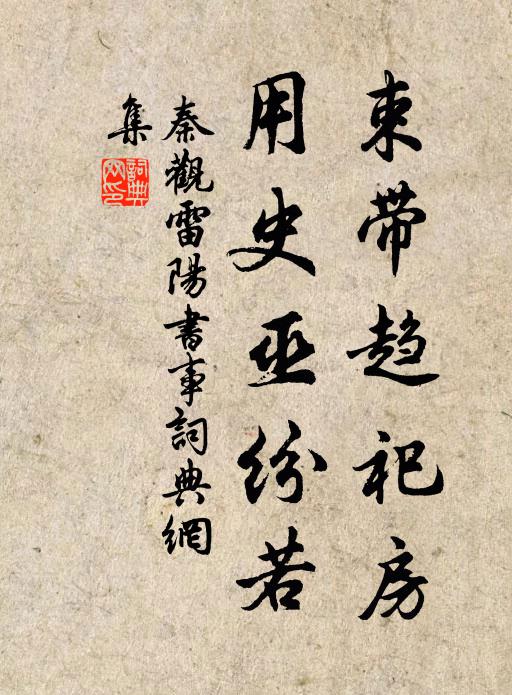 束帶趋祀房
用史巫紛若
秦觀雷陽書事詞典網
集
詞典
网印